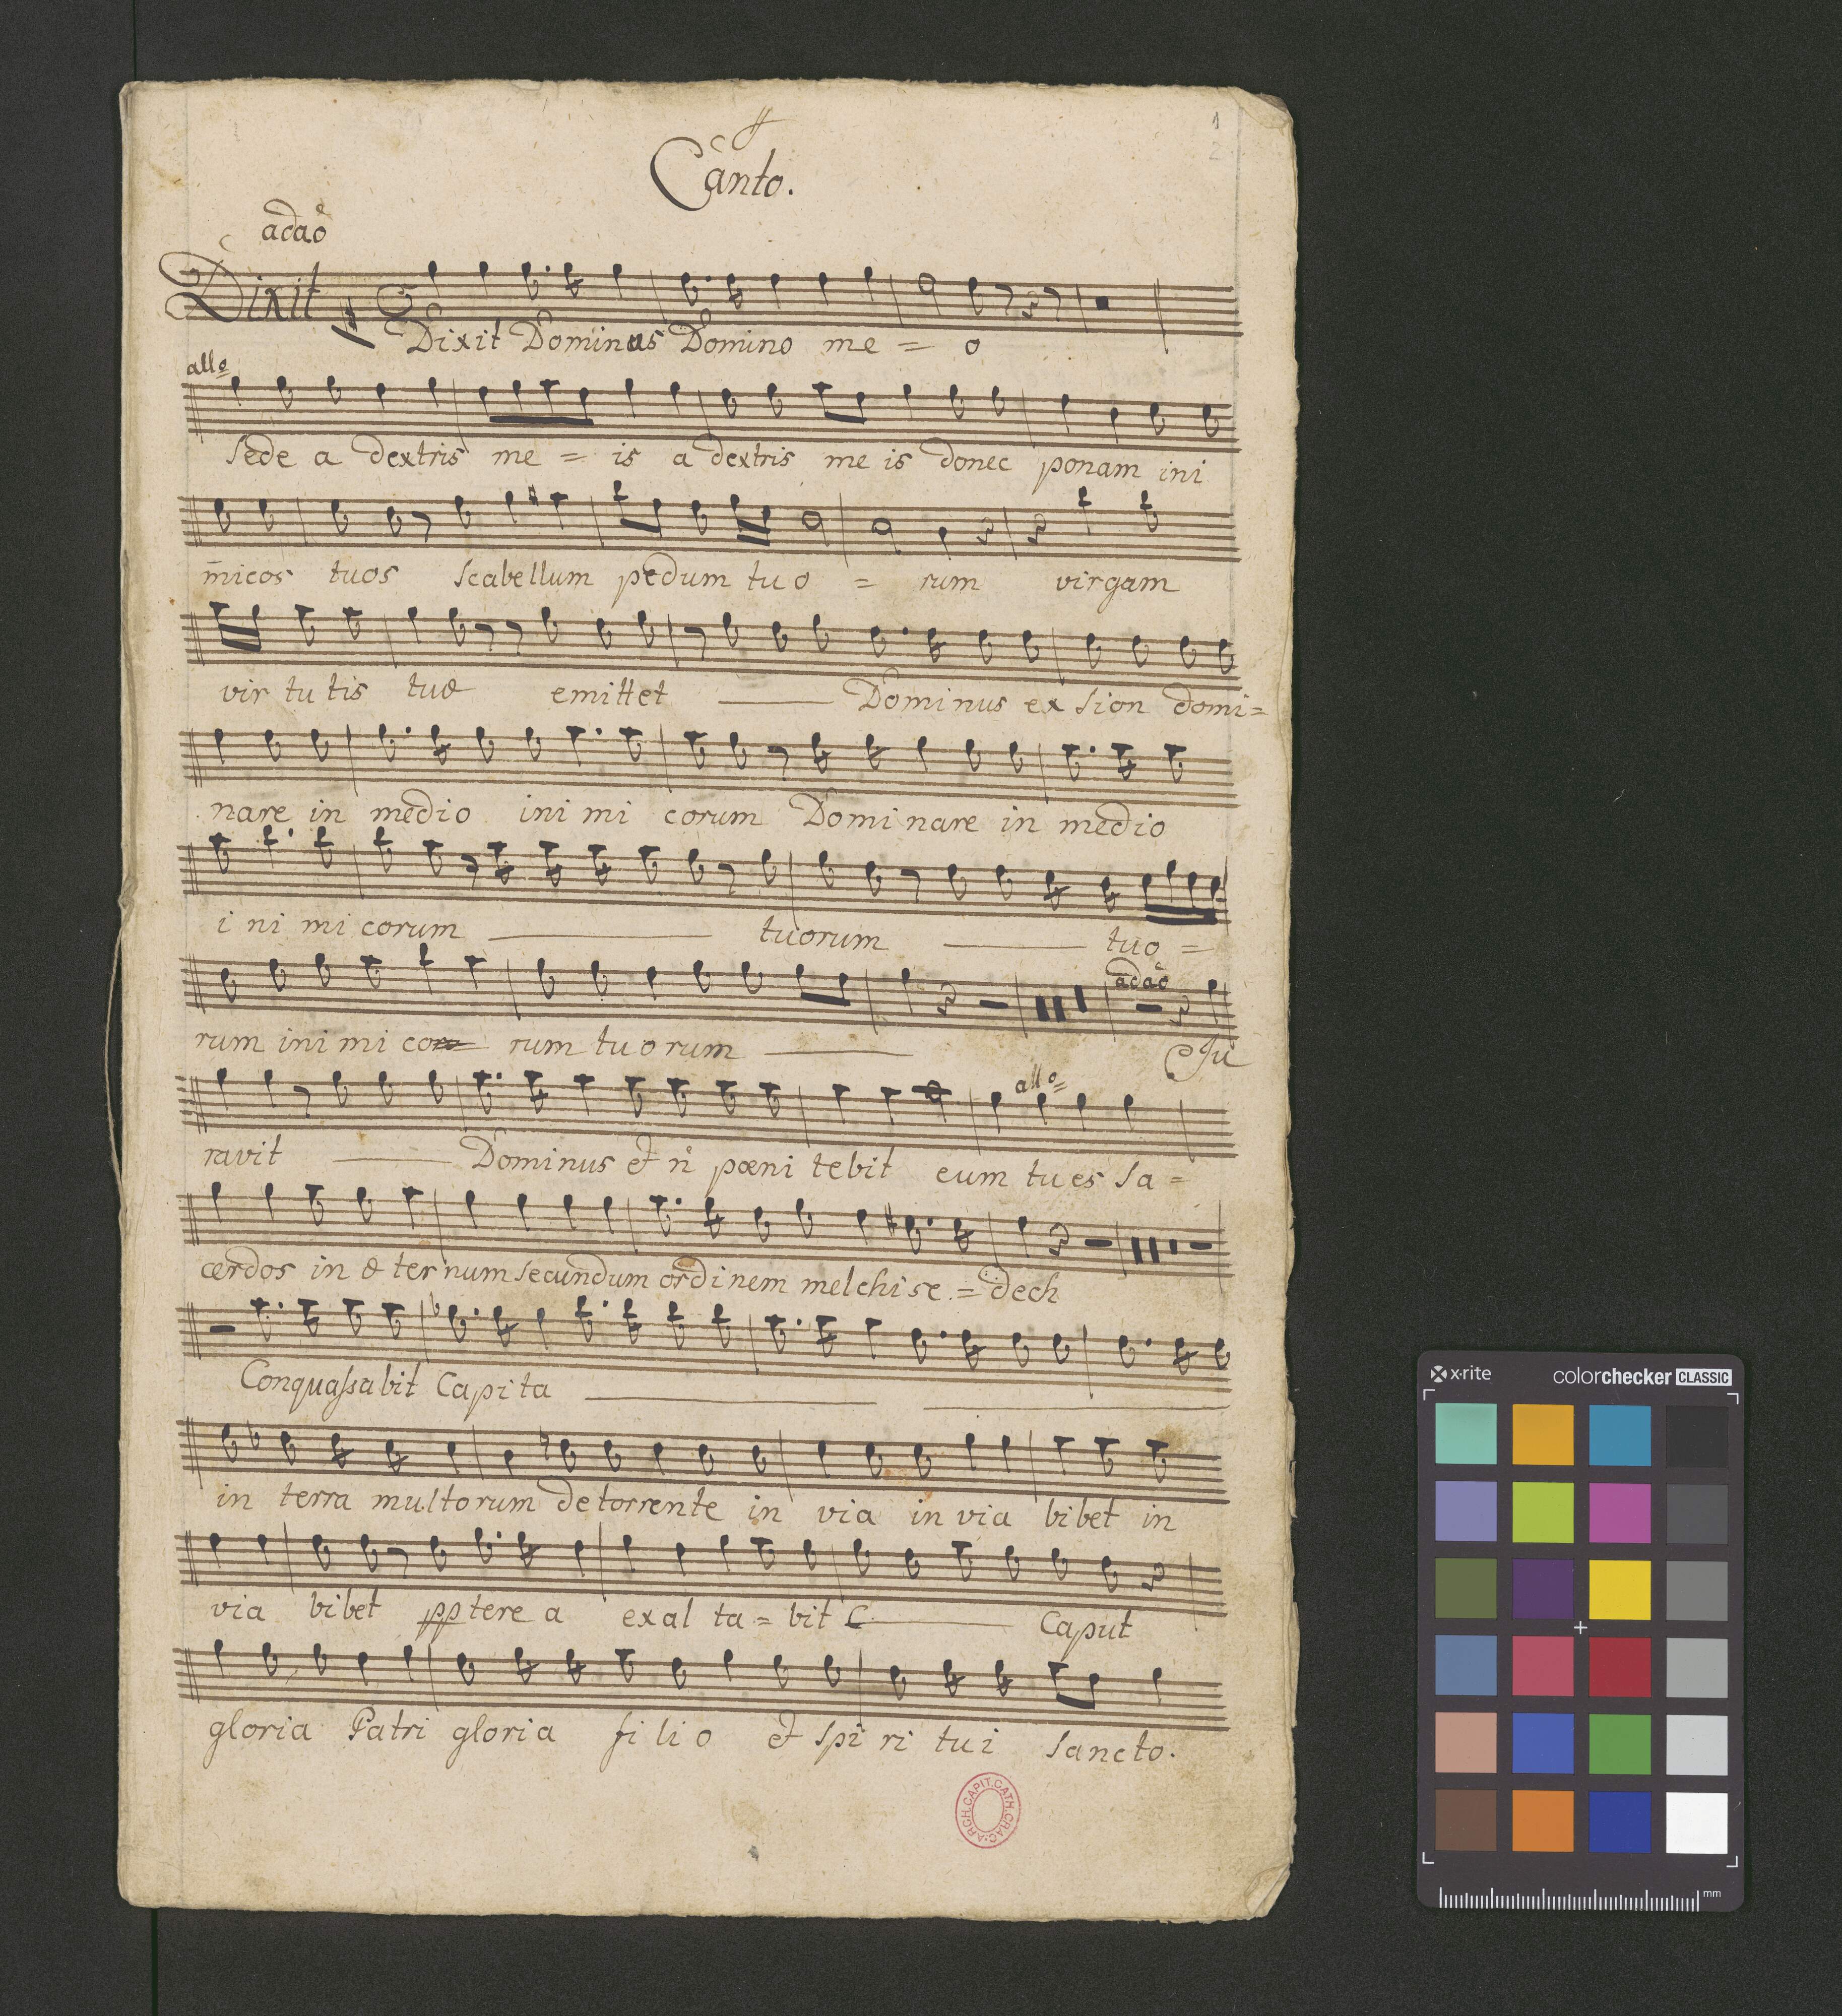 1
2
Canto.
adaō
Dixit
Dixit Dominus Domino me = o
allo
Sede a dextris me = is a dextris me is donec ponam ini
m̄icos tuos scabellum pedum tu o = rum virgam
vir tu tis tuæ emittet Dominus ex sion domi=
nare in medio ini mi corum Domi nare in medio
i ni mi corum tuorum tuo =
adaō
rum ini mi co rum tu o rum Ju
allo=
ravit Dominus et n̄ pœni tebit eum tu es sa =
cerdos in æ ter num secundum ordinem melchise = dech
Conquassabit Capi ta
in terra multorum de torrente in via in via bibet in
via bibet pptere a exal ta = bit C Caput
gloria Patri gloria fi li o et spi ri tu i sancto.
ARCH. CAPIT. CATH. CRAC.
x·rite colorchecker CLASSIC
mm